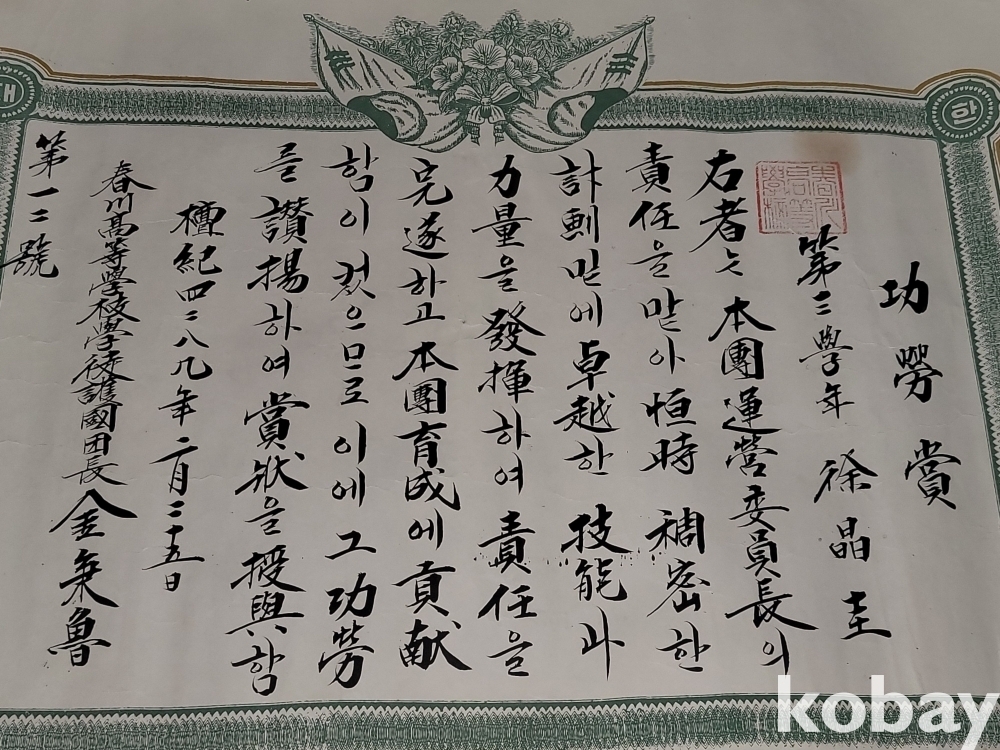 功勞賞
第三學年 徐晶圭
右者는 本團運營委員長의
責任을 맡아 恒時 稠密한
計劃 밑에 卓越한 技能과
力量을 發揮하여 責任을
完遂하고 本團育成에 貢献
함이 컸으므로 이에 그 功勞
를 讃揚하여 賞狀을 授與함
檀紀四二八九年 二月 二十五日
春川高等學校學徒護國団長 金乘魯
第一二號
kobay